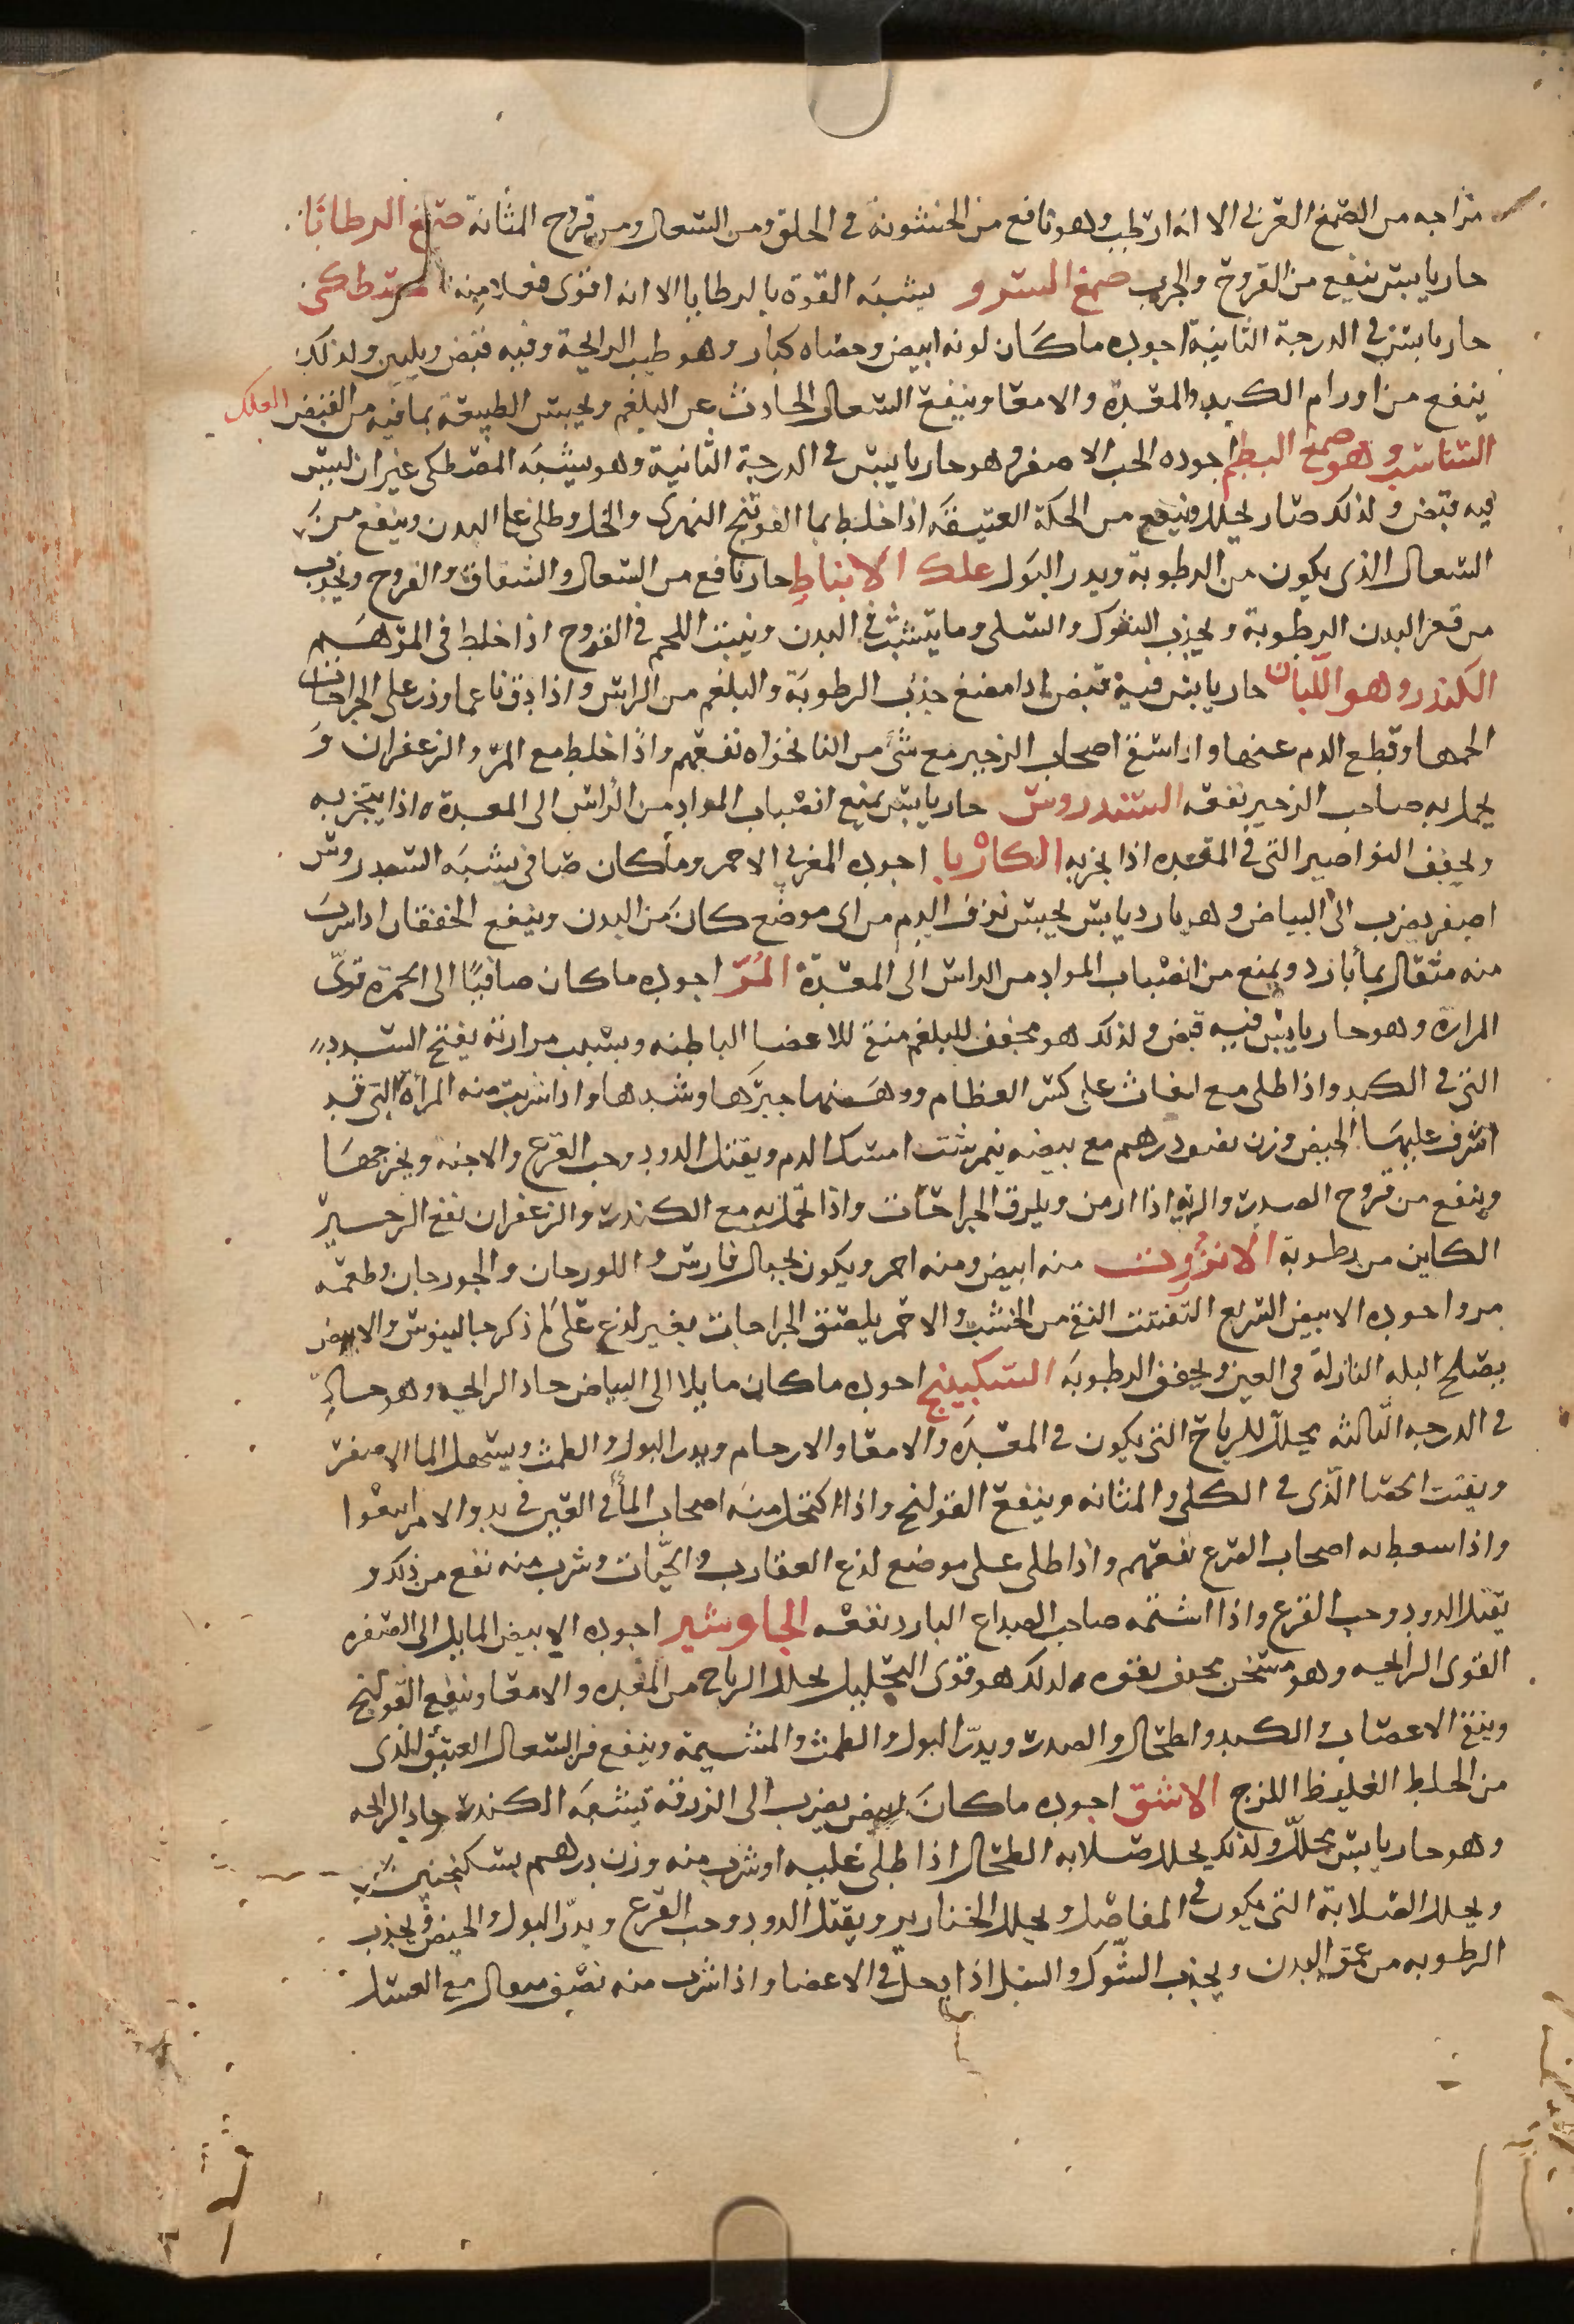 مزاجه من الصمغ العربى الا انه ارطب وهو نافع من الخشونة فى الحلق ومن السعال ومن قروح المثانة صمغ الرطابا
حار يابس ينفع من القروح والجرب صمغ السرو يشبه القوة بالرطابا الا انه اقوى فعلا منه مصطكى
حار يابس فى الدرجة الثانية اجوده ما كان لونه ابيض وحصاه كبار وهو طيب الرايحة وفيه قبض وتليين ولذلك
ينفع من اورام الكبد والمعدة والامعا وينفع السعال الحادث عن البلغم ويحبس الطبيعة بما فيه من القبض العلك
وهو صمغ البطم اجوده الحب الاصفر وهو حار يابس فى الدرجة الثانية وهو يشبه المصطكى غير ان ليس
فيه قبض ولذلك صار يحلل وينفع من الحكة العتيقه اذا خلط بما الفوتنج النهرى والخل وطلى على البدن وينفع من
السعال الذى يكون من الرطوبة ويدر البول علك الانباط حار نافع من السعال والشقاق والقروح ويجذب
من قعر البدن الرطوبة ويجذب الشوك والسلى وما يتشبث فى البدن وينبت اللحم فى القروح اذا خلط فى المرهم
الكندر وهو اللبان حار يابس فيه قبض اذا مضغ جذب الرطوبة والبلغم من الراس واذا دق ناعما وذر على الجراحات
الحمها وقطع الدم عنها واذا استف اصحاب الزحير مع شئ من النانخواه نفعهم واذا خلط مع المر والزعفران و
يحمل به صاحب الزحير نفعه السندروس حار يابس يمنع انصباب المواد من الراس الى المعدة اذا يتبخر به
ويجفف النواصير التى فى المقعده اذا بخر به الكاربا اجوده المغربى الاحمر وما كان صافى يشبه السندروس
اصفر يضرب الى البياض وهو بارد يابس يحبس نزف الدم من اى موضع كان من البدن وينفع الخفقان اذا شرب
منه مثقال بما بارد ويمنع من انصباب المواد من الراس الى المعدة المر اجوده ما كان صافيا الى الحمرة قوى
المرارة وهو حار يابس فيه قبض ولذلك هو مجفف للبلغم منق للاعضا الباطنه وبسبب مرارته يفتح السدد
التى فى الكبد واذا طلى مع على كسر العظام ووهنها جبرها وشدها واذا شربت منه المرأة التى قد
اشرف عليها الحيض وزن نصف درهم مع بيضه نيمرشت امسك الدم ويقتل الدود وحب القرع والاجنه ويخرجها
وينفع من قروح الصدر والريه اذا ازمن ويلزق الجراحات واذا تحمل به مع الكندر والزعفران نفع الزحير
الكاين من رطوبة الانزروت منه ابيض ومنه احمر ويكون بجبال فارس و اللورجان والجورجان وطعمه
مر واجوده الابيض السريع التفتت النقى من الخشب والاحمر يلصق الجراحات بغير لذع على ما ذكر جالينوس والابيض
يصلح البله النازلة فى العين ويجفف الرطوبة السكبينج اجوده ما كان مايلا الى البياض حاد الرايحه وهو حار
فى الدرجه الثالثه يحلل للرياح التى يكون فى المعده والامعا والارحام ويدر البول والطمث ويسهل الما الاصفر
ويفتت الحصا الذى فى الكلى والمثانه وينفع القولنج واذا اكتحل منه اصحاب الماء فى العين فى بدو الامر ابرءوا
واذا سعط به اصحاب الصرع نفعهم واذا طلى على موضع لذع العقارب والحيات وشرب منه نفع من ذلك و
يقتل الدود وحب القرع واذا اشتمه صاحب الصداع البارد نفعه الجاوشير اجوده الابيض المايل الى الصفره
القوى الرايحه وهو مسخن مجفف بقوه لذلك هو قوى التحليل يحلل الرياح من المعده والامعا وينفع القولنج
وينقى الاعصاب و الكبد والطحال والصدر ويدر البول والطمث والمشيمة وينفع من السعال العتيق الذى
من الخلط الغليظ اللزج الاشق اجوده ما كان ابيض يضرب الى الزرقة يشبه الكندر حاد الرايحه
وهو حار يابس محلل ولذلك يحلل صلابه الطحال اذا طلى عليه او شرب منه وزن درهم بسكنجبين
ويحلل الصلابة التى يكون فى المفاصل ويحلل الخنازير ويقتل الدود وحب القرع ويدر البول والحيض ويجذب
الرطوبه من عمق البدن ويجذب الشوك و اذا يحل فى الاعضا واذا شرب منه نصف مثقال مع العسل